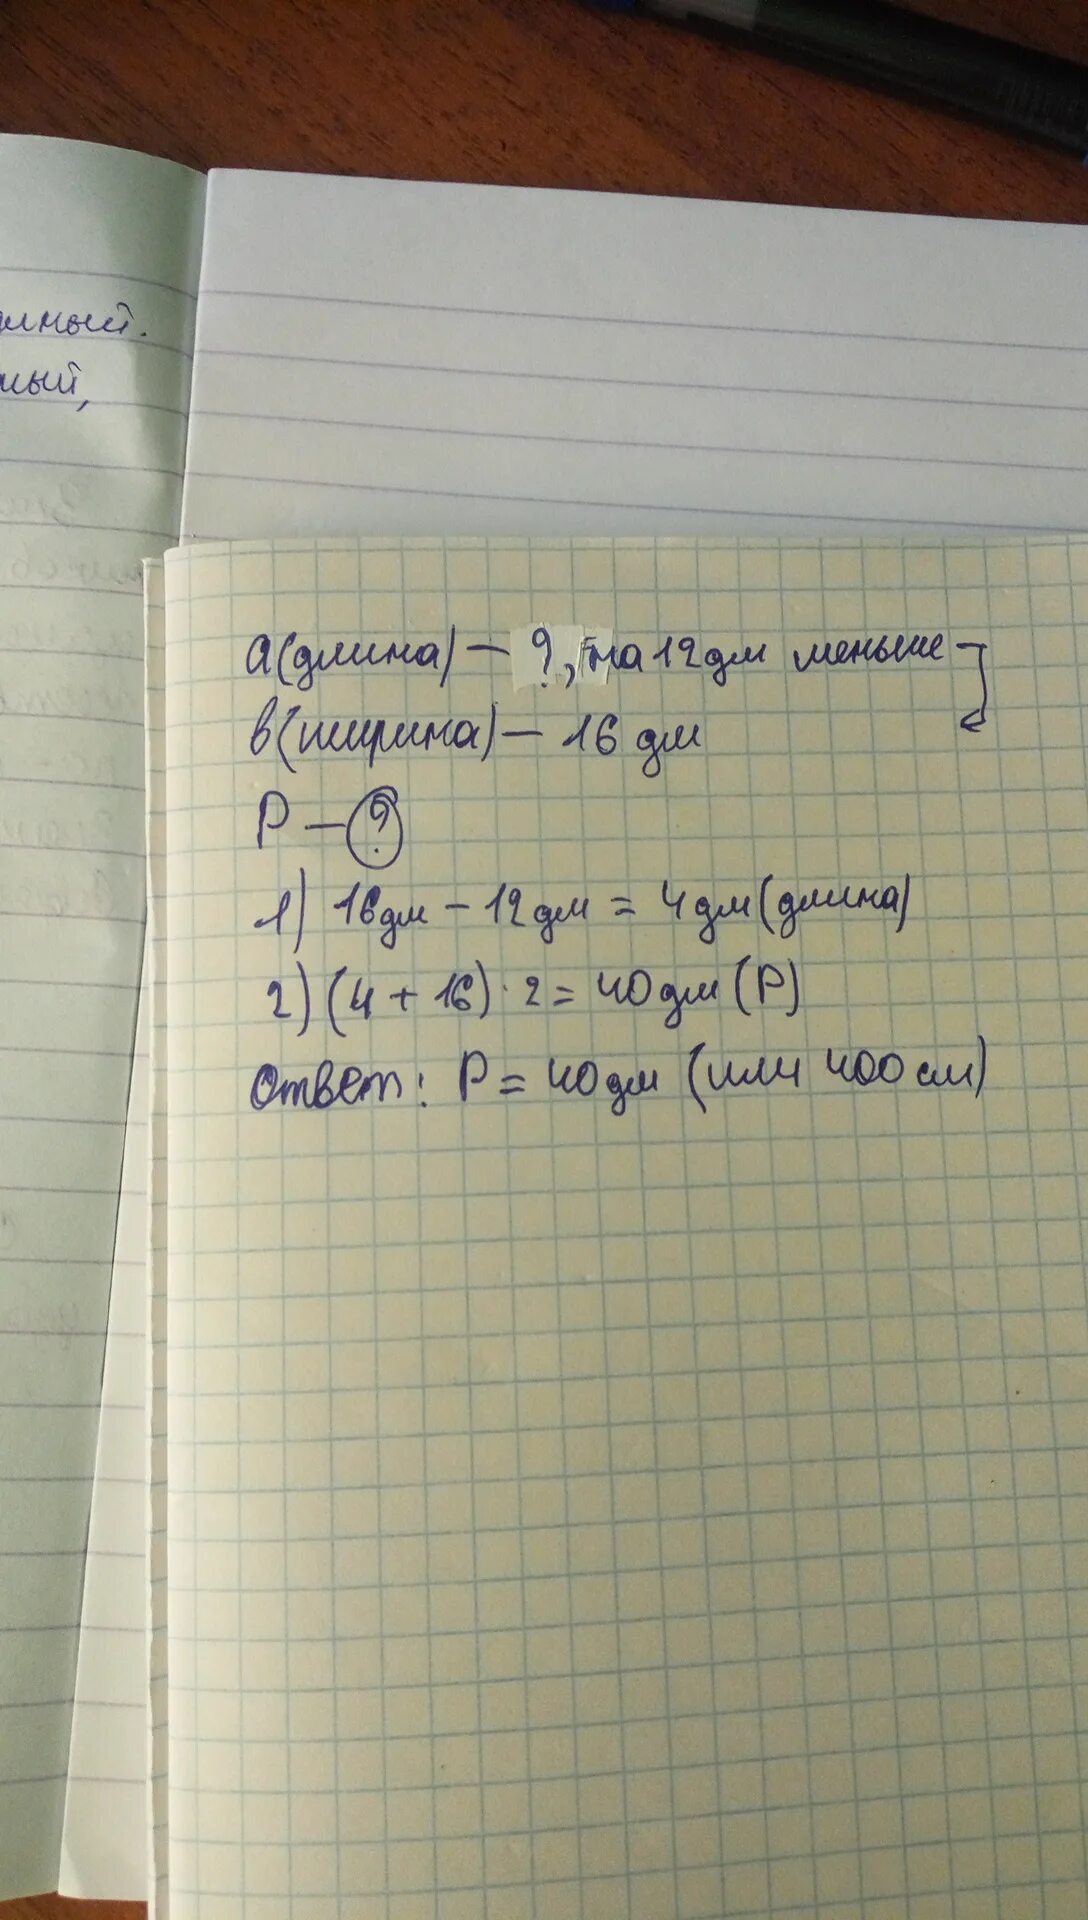 мный.
ный,
a(длина) – ?, на 12 дм меньше
в(ширина) – 16 дм
P – ?
1) 16 дм – 12 дм = 4 дм (длина)
2) (4 + 16) · 2 = 40 дм (P)
Ответ: P = 40 дм (или 400 см)